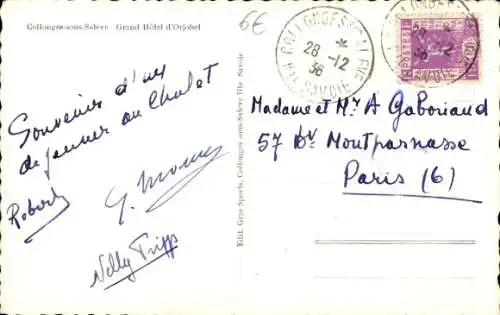 Collonges-sous-Salève Grand Hôtel d'Orjobel
6€
COLLONGES-S-SALÈVE
28 -12
36
HTE SAVOIE
POSTES
28 -12
36
SAVOIE
Souvenir d'un
dejeuner au Chalet
Robert
Nelly Fripps
Edit. Gras Sports, Collonges-sous-Salève Hte Savoie
Madame et Mr A Gaboriaud
57 bv Montparnasse
Paris (6)